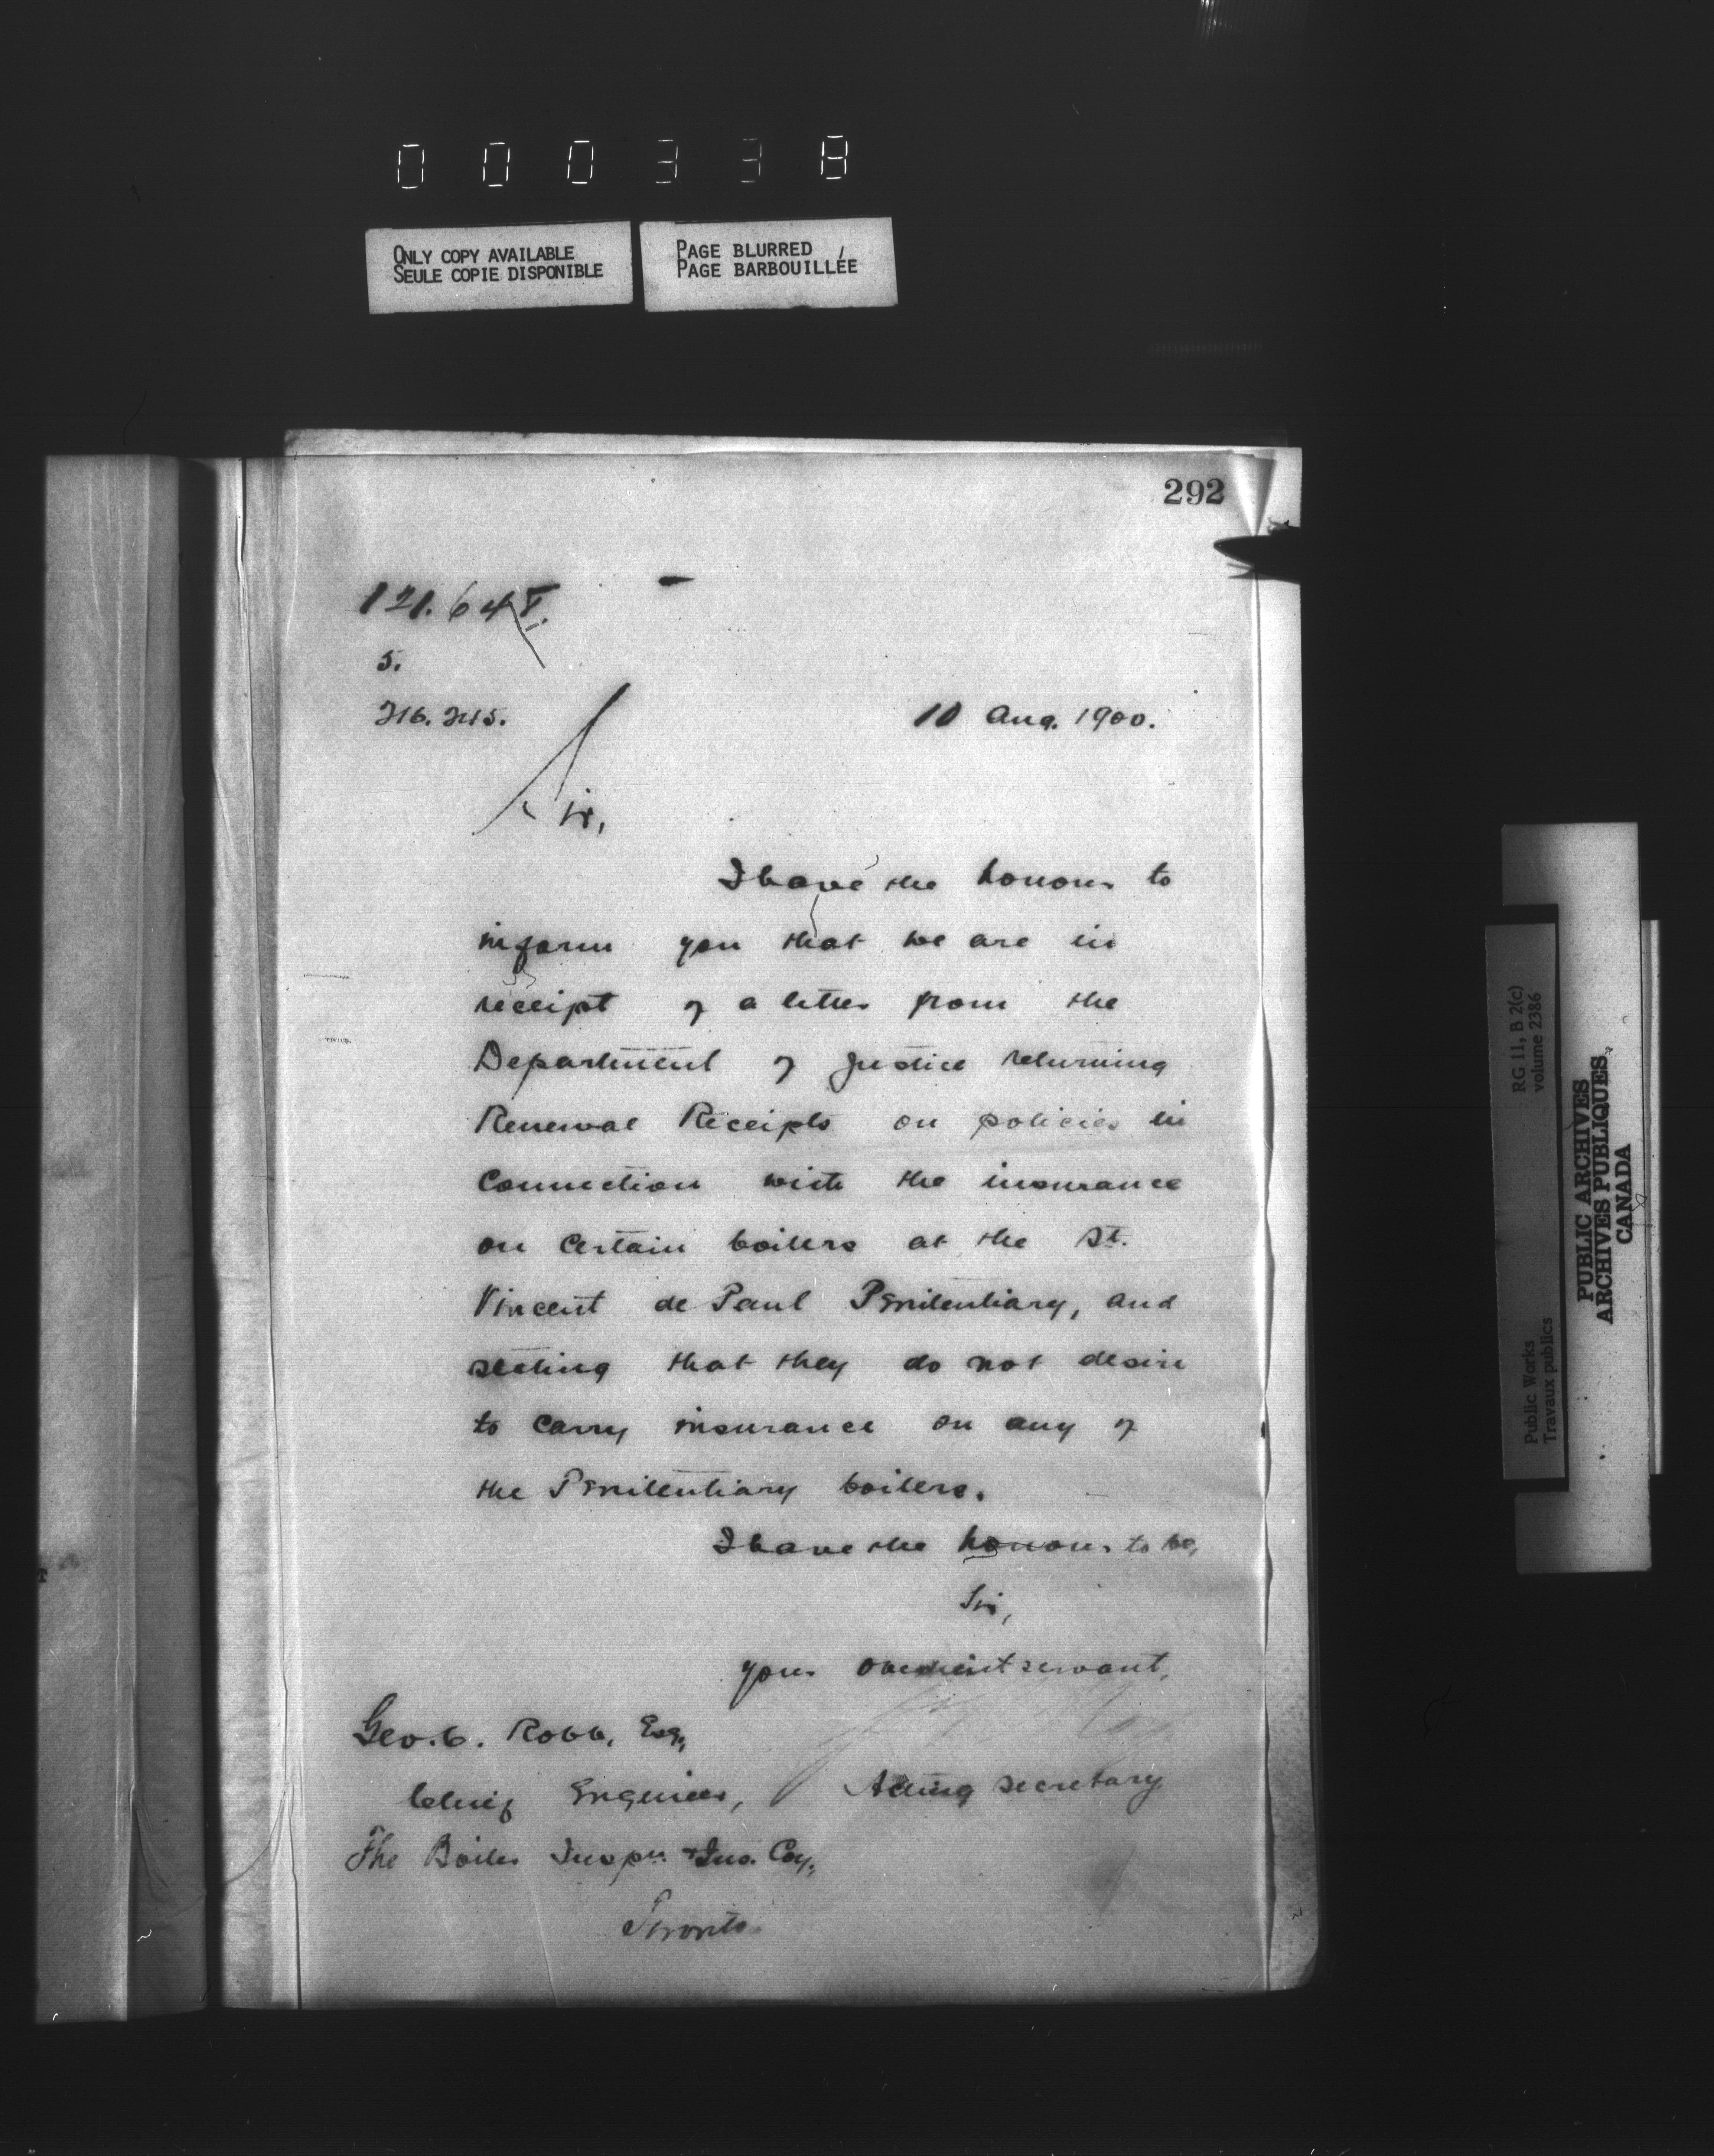 000338
ONLY COPY AVAILABLE
SEULE COPIE DISPONIBLE
PAGE BLURRED
PAGE BARBOUILLÉE
292
5.
10 Aug. 1900.
Sir,
I have the honour to
inform you that we are in
receipt of a letter from the
Department of Justice returning
Renewal Receipts on policies in
connection with the insurance
on certain boilers at the St.
Vincent de Paul Penitentiary, and
stating that they do not desire
to carry insurance on any of
the Penitentiary boilers.
I have the honour to be,
Sir,
your obedient servant,
Geo. C. Robb, Esq.,
Acting Secretary
Chief Engineer,
The Boiler Inspn. & Ins. Coy.,
Toronto
RG 11, B 2(c)
volume 2386
Public Works
Travaux publics
PUBLIC ARCHIVES
ARCHIVES PUBLIQUES
CANADA